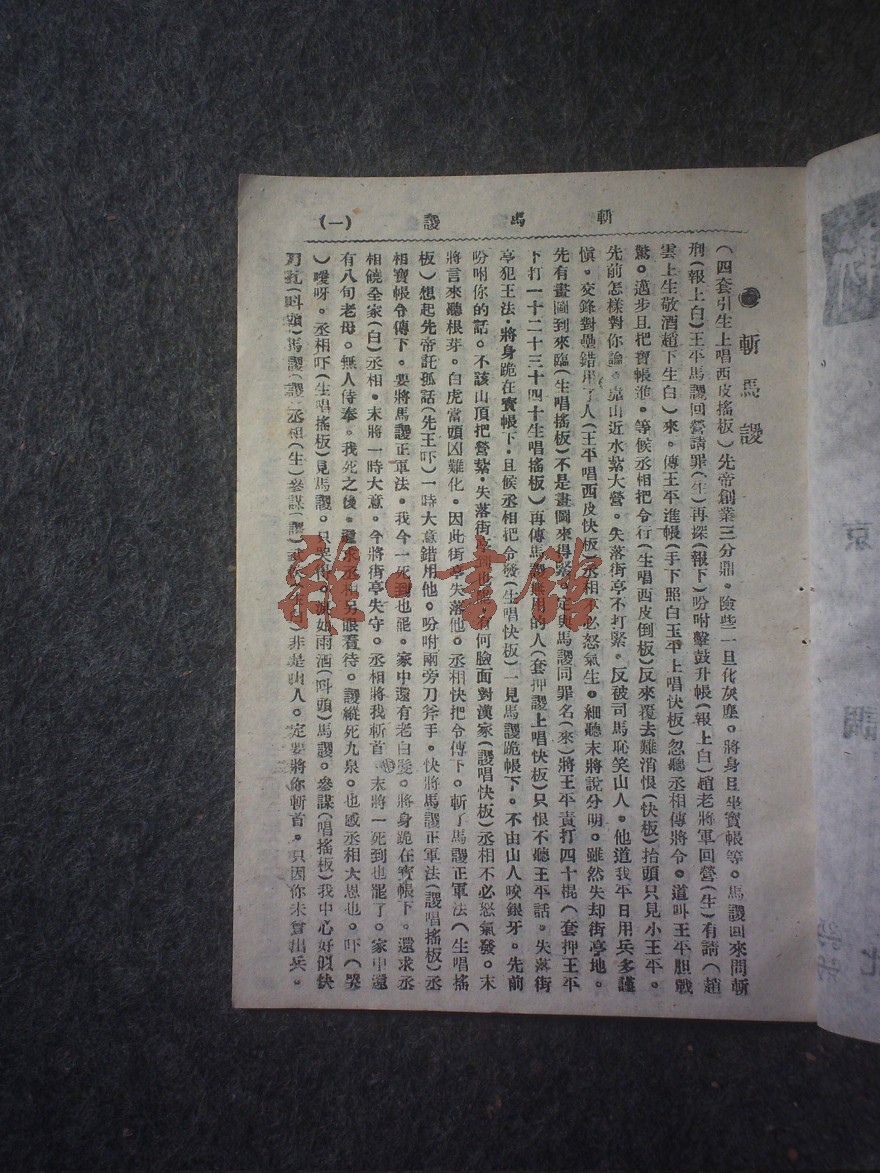 斬馬謖
(一)
斬馬謖
(四套引生上唱西皮搖板)先帝創業三分鼎。險些一旦化灰塵。將身且坐寶帳等。馬謖回來問斬
刑(報上白)王平馬謖回營請罪(生)再探(報下)吩咐擊鼓升帳(報上白)趙老將軍回營(生)有請(趙
雲上生敬酒趙下生白)來。傳王平進帳(手下照白玉平上唱快板)忽聽丞相傳將令。道叫王平胆戰
驚。邁步且把寶帳進。等候丞相把令行(生唱西皮倒板)反來覆去難消恨(快板)抬頭只見小王平。
先前怎樣對你論。靠山近水紮大營。失落街亭不打緊。反被司馬恥笑山人。他道我平日用兵多謹
愼。交鋒對壘錯用了人(王平唱西皮快板)丞相不必怒氣生。細聽末將說分明。雖然失却街亭地。
先有畫圖到來臨(生唱搖板)不是畫圖來得緊。定與馬謖同罪名(來)將王平責打四十棍(套押王平
下打一十二十三十四十生唱搖板)再傳馬謖無用的人(套押謖上唱快板)只恨不聽王平話。失落街
亭犯王法。將身跪在寶帳下。且候丞相把令發(生唱快板)一見馬謖跪帳下。不由山人咬銀牙。先前
吩咐你的話。不該山頂把營紮。失落街亭到也罷。有何臉面對漢家(謖唱快板)丞相不必怒氣發。末
將言來聽根芽。白虎當頭凶難化。因此街亭失落他。丞相快把令傳下。斬了馬謖正軍法(生唱搖
板)想起先帝託孤話(先王吓)一時大意錯用他。吩咐兩旁刀斧手。快將馬謖正軍法(謖唱搖板)丞
相寶帳令傳下。要將馬謖正軍法。我今一死到也罷。家中還有老白髮。將身跪在寶帳下。還求丞
相饒全家(白)丞相。末將一時大意。今將街亭失守。丞相將我斬首。末將一死到也罷了。家中還
有八旬老母。無人侍奉。我死之後。還求丞相另眼看待。謖縱死九泉。也感丞相大恩也。吓(哭
)噯呀。丞相吓(生唱搖板)見馬謖。只哭得。淚如雨洒(叫頭)馬謖。參謀(唱搖板)我中心好似鈌
刀(叫頭)馬謖(謖)丞相(生)參謀(謖)非是山人。定要將你斬首。只因你未曾出兵。
雅·書館
京調